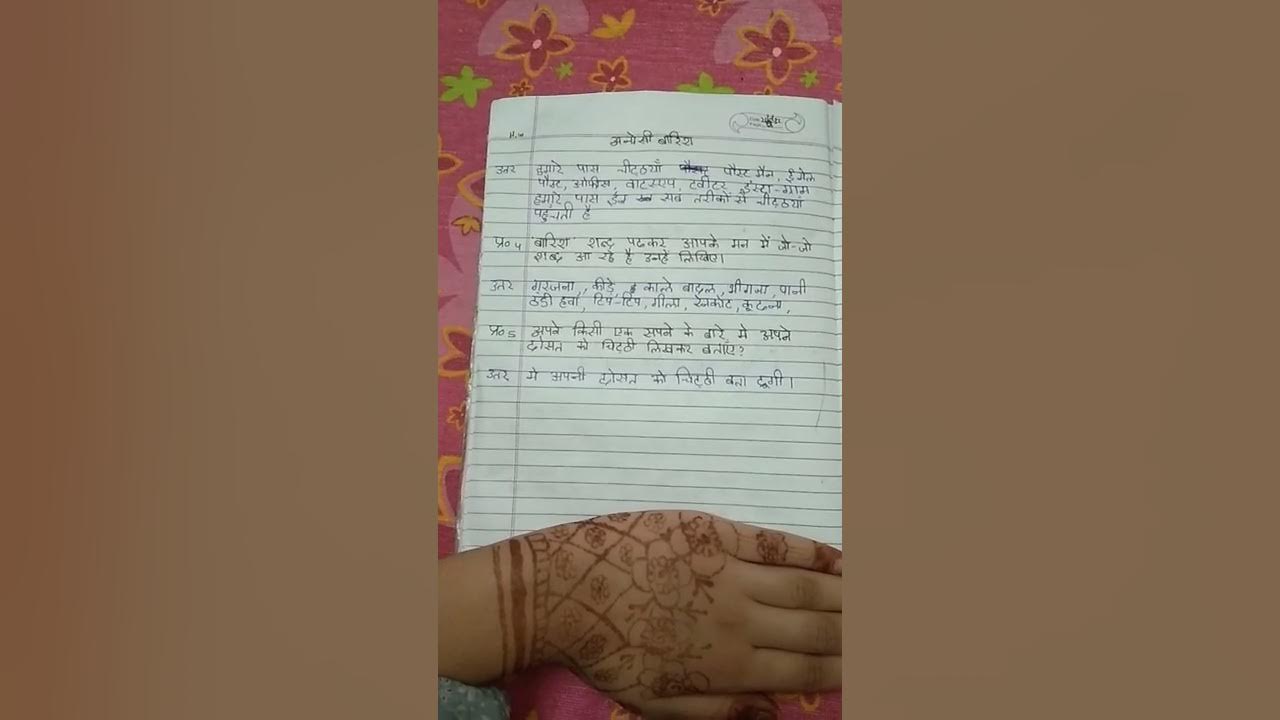 H.W
अनोखी बारिश
उत्तर हमारे पास चीट्ठयाँ पौस्ट मैन, ईमेल
पौस्ट, ओफीस, वाटस्एप, टवीटर इंस्टा-ग्राम
हमारे पास ईन सब तरीकों से चीट्ठयाँ
पहुंचती है
प्र० 4 'बारिश' शब्द पढकर आपके मन में जो-जो
शब्द आ रहे है उनहे लिखिए।
उत्तर गरजना, कीड़े, काले बादल, भीगना, पानी
ठंडी हवा, टिप-टिप, गीला, रेनकोट, कूदना,
प्र० 5 अपने किसी एक सपने के बारे मे अपने
दोसत को चिट्ठी लिखकर बताएँ?
उत्तर मे अपनी दोसत को चिट्ठी बता दूगी।